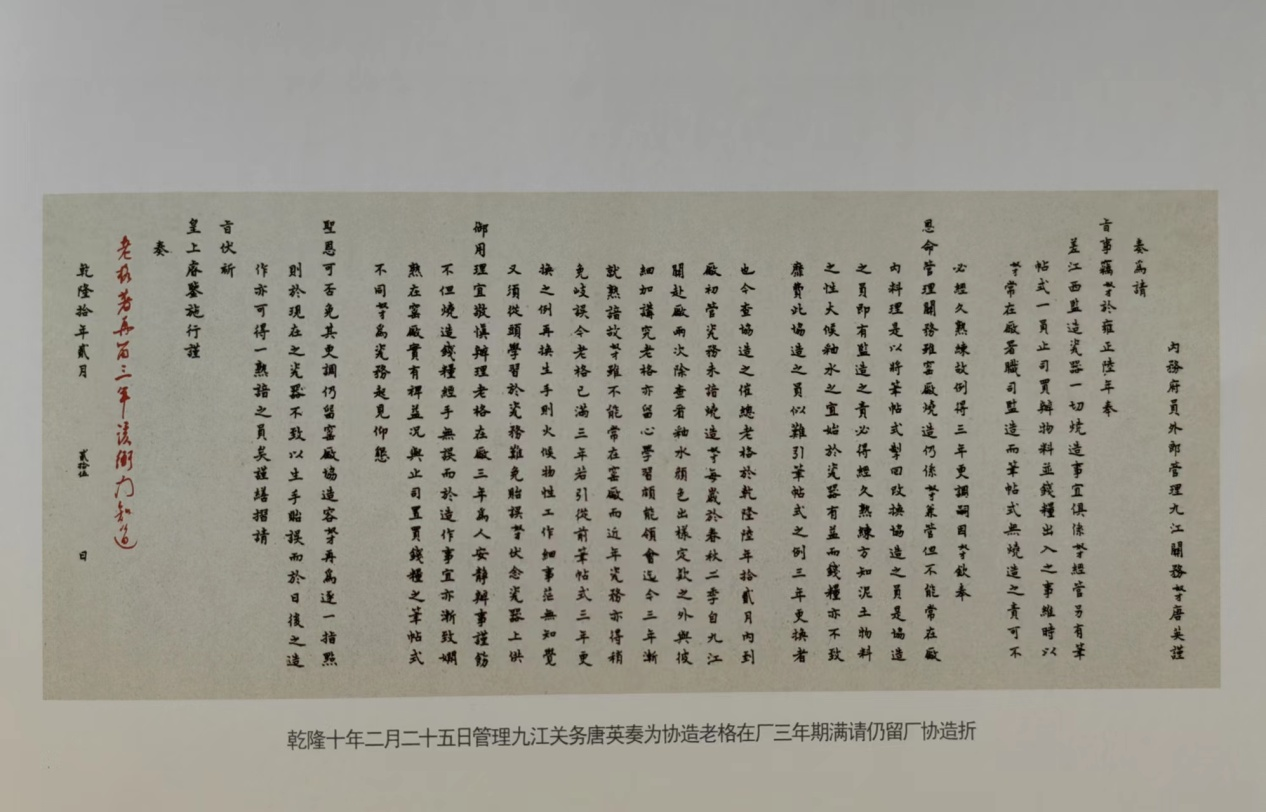 內務府員外郎管理九江關務奴才唐英謹
奏為請
旨事竊奴才於雍正陸年奉
差江西監造瓷器一切燒造事宜俱係奴才經管另有筆
帖式一員止司買辦物料並錢糧出入之事維時以
奴才常在廠署職司監造而筆帖式無燒造之責可不
必經久熟練故例得三年更調嗣因奴才欽奉
恩命管理關務雖窑廠燒造仍係奴才兼管但不能常在廠
內料理是以將筆帖式掣回改換協造之員是協造
之員即有監造之責必得經久熟練方知泥土物料
之性火候釉水之宜始於瓷器有益而錢糧亦不致
靡費此協造之員似難引筆帖式之例三年更換者
也今查協造之催總老格於乾隆陸年拾貳月內到
廠初管瓷務未諳燒造奴才每歲於春秋二季自九江
關赴廠兩次除查看釉水顏色出樣定款之外與彼
細加講究老格亦留心學習頗能領會迄今三年漸
就熟諳故奴才雖不能常在窑廠而近年瓷務亦得稍
免歧誤今老格已滿三年若引從前筆帖式三年更
換之例再換生手則火候物性工作細事茫無知覺
又須從頭學習於瓷務難免貽誤奴才伏念瓷器上供
御用理宜敬慎辦理老格在廠三年為人安靜辦事謹飭
不但燒造錢糧經手無誤而於造作事宜亦漸致嫻
熟在窑廠實有裨益況與止司置買錢糧之筆帖式
不同奴才為瓷務起見仰懇
聖恩可否免其更調仍留窑廠協造容奴才再為逐一指點
則於現在之瓷器不致以生手貽誤而於日後之造
作亦可得一熟諳之員矣謹繕摺請
旨伏祈
皇上睿鑒施行謹
奏
老格著再留三年該衙門知道
乾隆拾年貳月 貳拾伍 日
乾隆十年二月二十五日管理九江关务唐英奏为协造老格在厂三年期满请仍留厂协造折